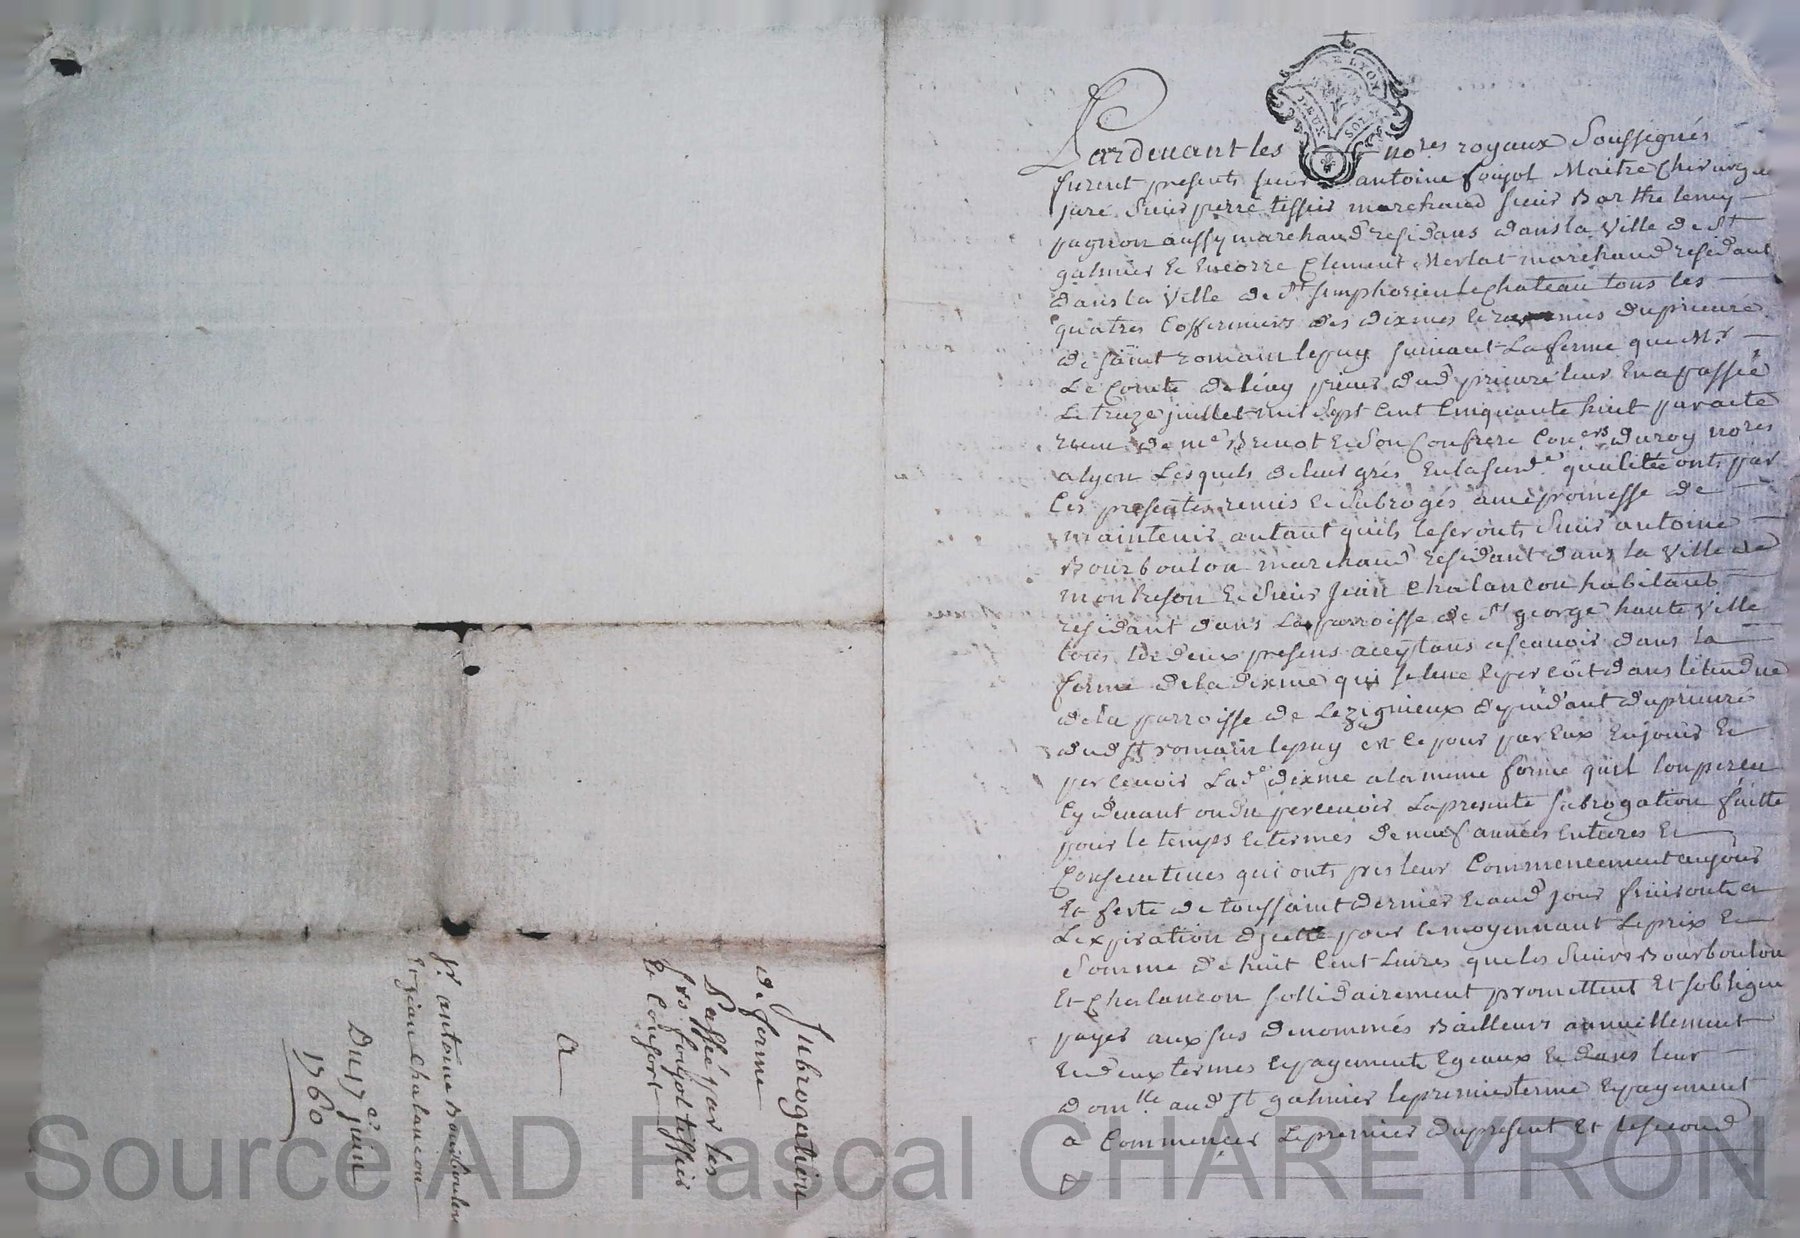 Subrogation
de ferme
Passée par les
Srs foujol tissier
et Consorts
a
Sr antoine Bourboulon
Et jean Chalancon
Du 17e juin
1760
GNAL. DE LYON
DEUX SOLS
Pardevant les nores royaux Soussignés
furent presents sieur antoine foujol Maitre Chirurgien
juré Sieur pierre tissier marchand sieur Barthelemy
pagnon aussy marchand residans dans la Ville de St
galmier et Encorre Clement Merlat marchand residant
dans la Ville de St simphorien le chateau tous les
quatres Coffermiers des dixmes et revenus du prieuré
de saint romain le puy suivant La ferme que Mr
Le Comte de prieur dud prieuré leur En a passée
Le treize juillet mil sept cent Cinquante huit par acte
receu de me Brenot et son Confrere Coners du roy nores
a lyon Lesquels de leur grés En la susde qualitée ont par
Ces presentes remis et subrogés avec promesse de
maintenir autant quils le seront Sieur antoine
Bourboulon marchand residant dans la Ville de
montbrison et Sieur Jean Chalancon habitant
residant dans La parroisse de St george haute Ville
tous les deux presens acceptans a scavoir dans la
ferme de la dixme qui se leve et percoit dans létendue
de la parroisse de Lezignieux dependant du prieuré
dud St romain le puy et ce pour par Eux En jouir et
percevoir Lade dixme a la meme forme quil lon perceu
Cy devant ou du percevoir La presente subrogation faitte
pour le temps et termes de neuf années Entieres Et
Consecutives qui ont pris leur Commencement au jour
Et feste de toussaint dernier et aud jour finiront a
Lexpiration dicelle pour et moyennant Le prix Et
Somme de huit Cent Livres que les Sieurs Bourboulon
Et Chalancon sollidairement promettent Et sobligent
payer aux sus denommés Bailleurs annuellement
En deux termes Et payements Egeaux Et dans leur
domlle aud St galmier le premier terme Et payement
a Commencer Le premier du present Et le second
Source AD Pascal CHAREYRON